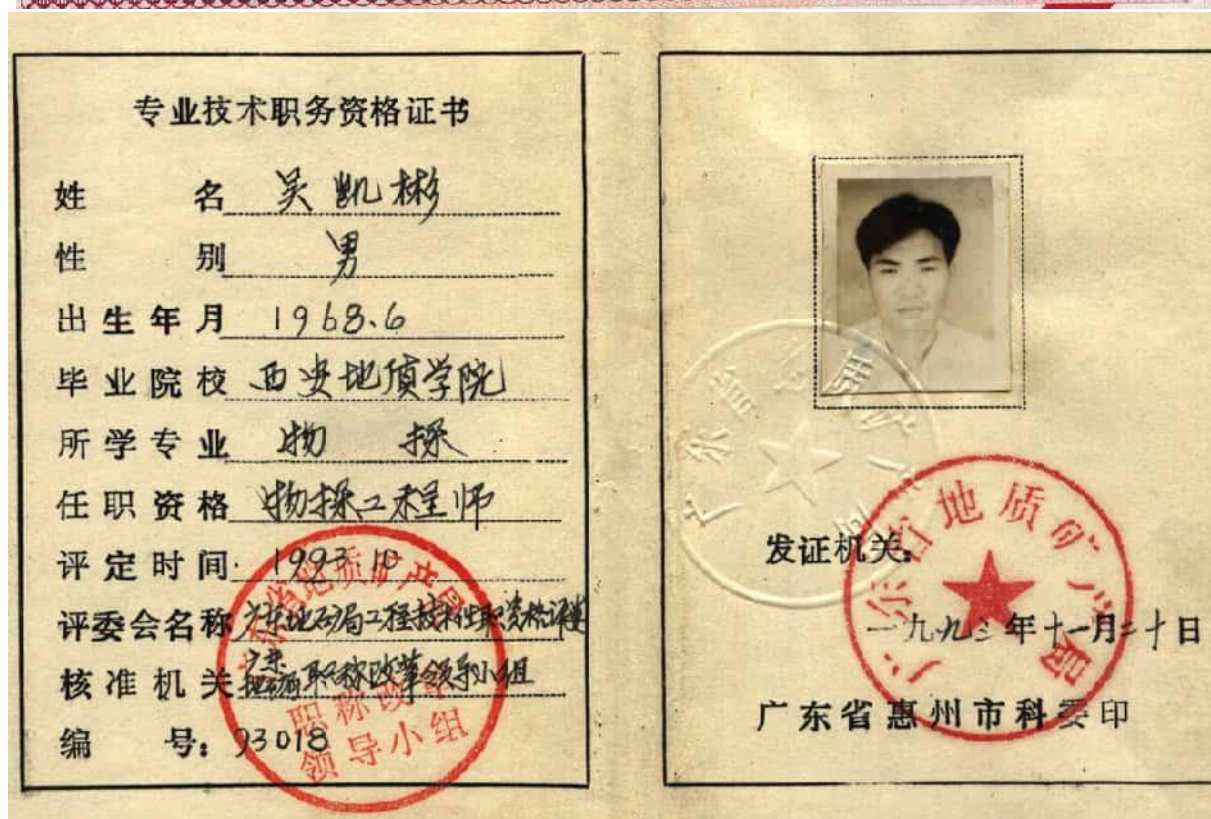 专业技术职务资格证书
姓 名 吴凯彬
性 别 男
出生年月 1968.6
毕业院校 西安地质学院
所学专业 物 探
任职资格 物探工程师
评定时间 1993.10
评委会名称 广东地矿局工程技术任职资格评委
核准机关 广东地矿局职称改革领导小组
编 号:93018
广东省地质矿产局
职称改革
领导小组
广东省地质矿产局
发证机关:
广东省地质矿产局
一九九三年十一月二十日
广东省惠州市科委印